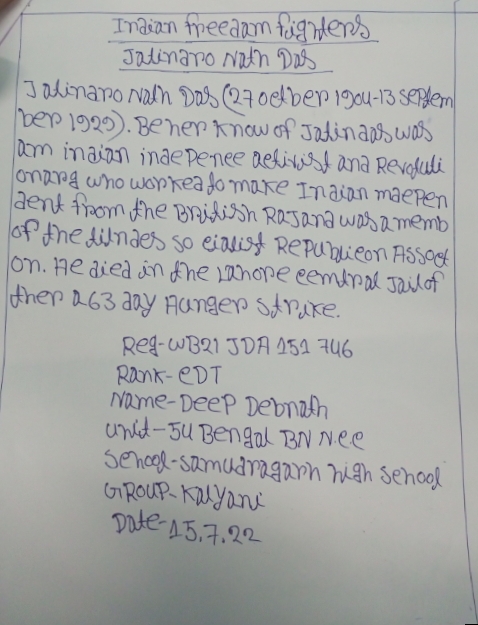 Indian freedam fighters
Jatinaro Nath Das
Jatinaro Nath Das (27 octber 1904-13 septem
ber 1929). Beher know of Jatinaas was
am inaian inaepenee activist ana Revoluti
onarg who workea to make Inaian maepen
aent from the British Rajana was a memb
of the so eialist Republicon Associ
on. He aiea in the Lahore eemtral Jail of
ther a 63 aay Hunger strike.
Reg-WB21 JDA 151 746
Rank-CDT
Name-Deep Debnath
unit-54 Bengal BN Nee
School-samudragarh high school
GROUP-Kalyani
Date-15.7.22